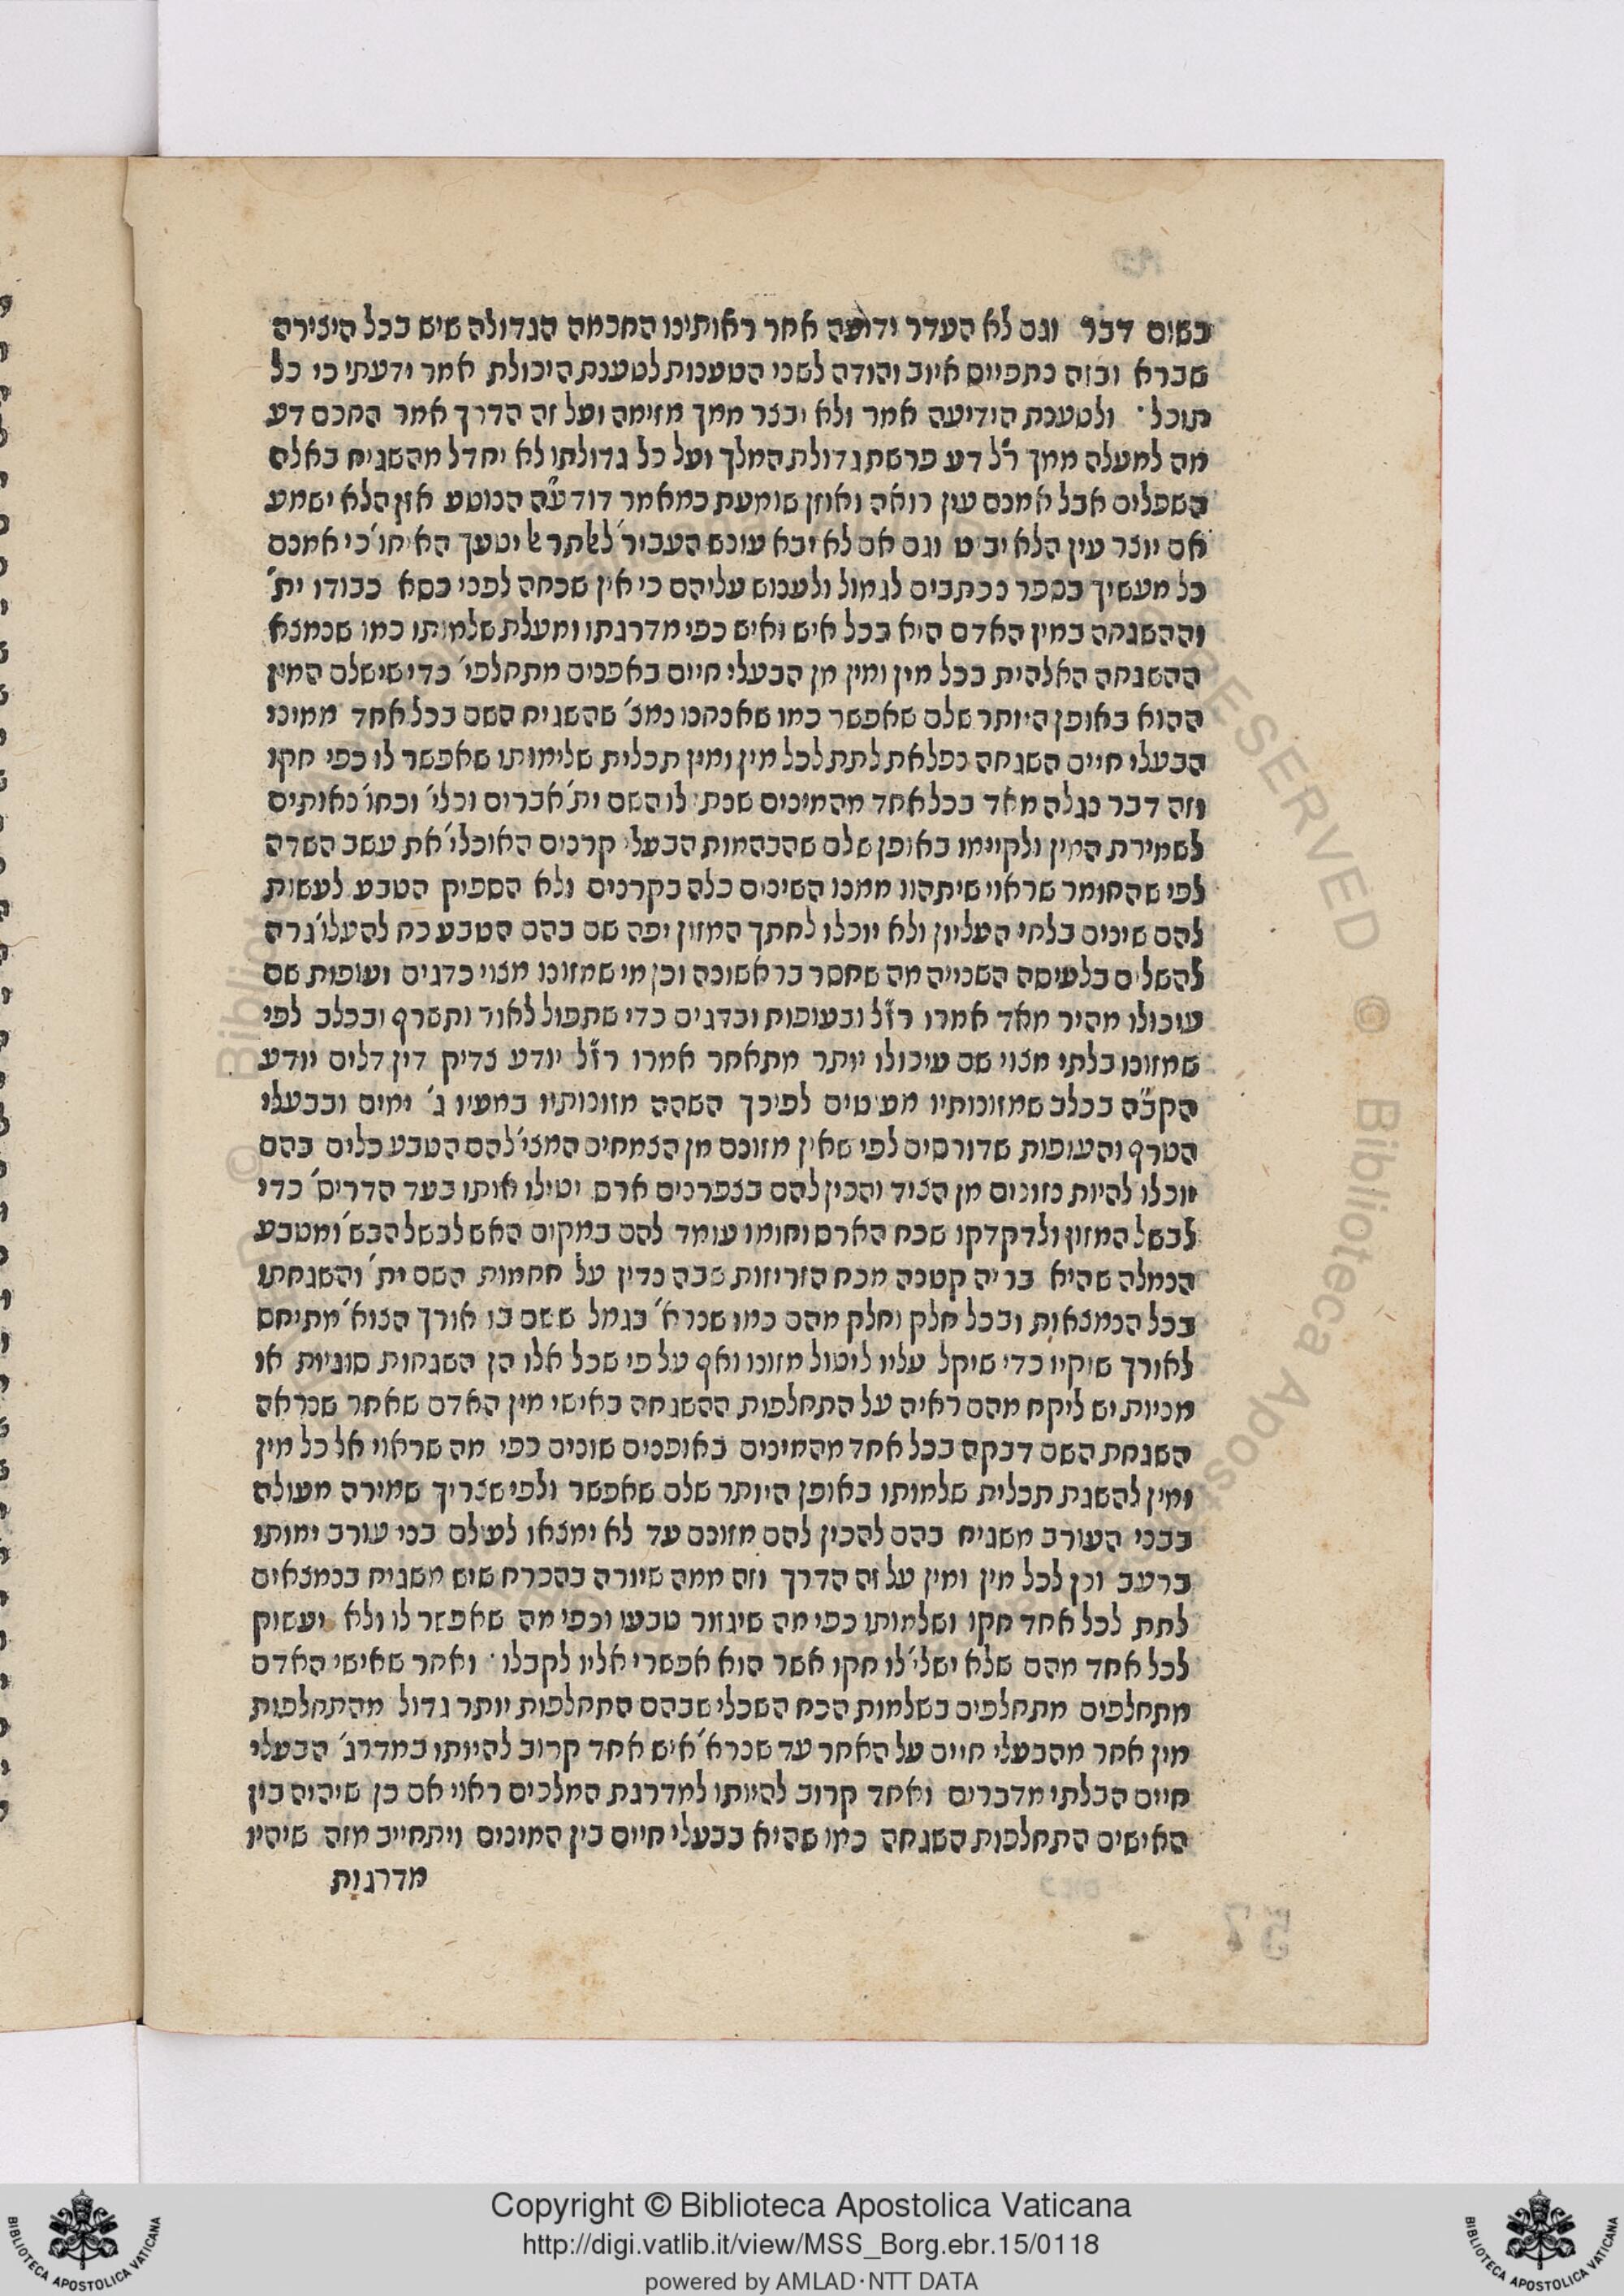 בשום דבר וגם לא העדר ידיעה אחר ראותינו החכמה הגדולה שיש בכל היצירה
שברא ובזה נתפייס איוב והודה לשני הטענות לטענת היכולת אמר ידעתי כי כל
תוכל· ולטענת הידיעה אמר ולא יבצר ממך מזימה ועל זה הדרך אמר החכם דע
מה למעלה ממך ר״ל דע פרשת גדולת המלך ועל כל גדולתו לא יחדל מהשגיח באלה
השפלים אבל אמנם עין רואה ואוזן שומעת כמאמר דוד ע״ה הנוטע אזן הלא ישמע
אם יוצר עין הלא יביט וגם אם לא יבא עונש העביר׳ לאלתר אל יטעך האיחו׳ כי אמנם
כל מעשיך בספר נכתבים לגמול ולענוש עליהם כי אין שכחה לפני כסא כבודו ית׳
וההשגחה במין האדם היא בכל איש ואיש כפי מדרגתו ומעלת שלמותו כמו שנמצא
ההשגחה האלהית בכל מין ומין מן הבעלי חיים באפנים מתחלפי׳ כדי שישלם המין
ההוא באופן היותר שלם שאפשר כמו שאנחנו נמצ׳ שהשגיח השם בכל אחד ממיני
הבעלי חיים השגחה נפלאת לתת לכל מין ומין תכלית שלימותו שאפשר לו כפי חקו
וזה דבר נגלה מאד בכל אחד מהמינים שנת׳ לו השם ית׳ אברים וכלי׳ וכחו׳ נאותים
לשמירת המין ולקיומו באופן שלם שהבהמות הבעלי קרנים האוכלי׳ את עשב השדה
לפי שהחומר שראוי שיתהוו ממנו השינים כלה בקרנים ולא הספיק הטבע לעשות
להם שינים בלחי העליון ולא יוכלו לחתך המזון יפה שם בהם הטבע כח להעלו׳ גרה
להשלים בלעיסה השנייה מה שחסר בראשונה וכן מי שמזונו מצוי כדגים ועופות שם
עיכולו מהיר מאד אמרו רז״ל ובעופות ובדגים כדי שתפול לאור ותשרף ובכלב לפי
שמזונו בלתי מצוי שם עיכולו יותר מתאחר אמרו רז״ל יודע צדיק דין דלים יודע
הקב״ה בכלב שמזונותיו מעיטים לפיכך השהה מזונותיו במעיו ג׳ ימים ובבעלי
הטרף והעופות שדורסים לפי שאין מזונם מן הצמחים המצי׳ להם הטבע כלים בהם
יוכלו להיות נזונים מן הציד והכין להם בצפרנים ארס יטילו אותו בעד הדרים׳ כדי
לבשל המזון ולדקדקו שכח הארס וחומו עומד להם במקום האש לבשל הבש׳ ומטבע
הנמלה שהיא בריה קטנה מכח הזריזות שבה נדין על חכמות השם ית׳ והשגחתו
בכל הנמצאות ובכל חלק וחלק מהם כמו שנרא׳ בגמל ששם בו אורך הצוא׳ מתיחס
לאורך שוקיו כדי שיקל עליו ליטול מזונו ואף על פי שכל אלו הן השגחות סוגיות או
מניות יש ליקח מהם ראיה על התחלפות ההשגחה באישי מין האדם שאחר שנראה
השגחת השם דבקה בכל אחד מהמינים באופנים שונים כפי מה שראוי אל כל מין
ומין להשגת תכלית שלמותו באופן היותר שלם שאפשר ולפי שצריך שמירה מעולה
בבני העורב משגיח בהם להכין להם מזונם עד לא ימצאו לעולם בני עורב ימותו
ברעב וכן לכל מין ומין על זה הדרך וזה ממה שיורה בהכרח שיש משגיח בנמצאים
לתת לכל אחד חקו ושלמותו כפי מה שיגזור טבעו וכפי מה שאפשר לו ולא יעשוק
לכל אחד מהם שלא ישלי׳ לו חקו אשר הוא אפשרי אליו לקבלו· ואחר שאישי האדם
מתחלפים מתחלפים בשלמות הכח השכלי שבהם התחלפות יותר גדול מהתחלפות
מין אחר מהבעלי חיים על האחר עד שנרא׳ איש אחד קרוב להיותו במדרג׳ הבעלי
חיים הבלתי מדברים ואחד קרוב להיותו למדרגת המלכים ראוי אם כן שיהיה בין
האישים התחלפות השגחה כמו שהיא בבעלי חיים בין המינים ויתחייב מזה שיהיו
מדרגות
57
Copyright © Biblioteca Apostolica Vaticana
http://digi.vatlib.it/view/MSS_Borg.ebr.15/0118
powered by AMLAD·NTT DATA
BIBLIOTECA APOSTOLICA VATICANA
BIBLIOTECA APOSTOLICA VATICANA